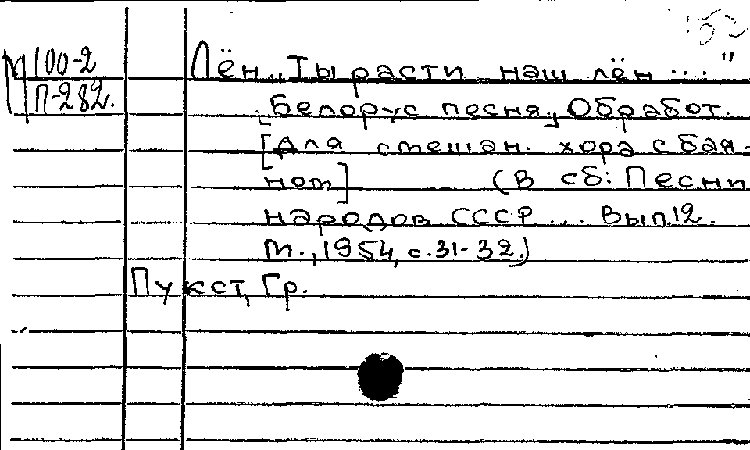 М 100-2
П-282.
Лён „Ты расти наш лён ..."
[Белорус песня], Обработ.
[Для смешан. хора с бая-
ном] (В сб: Песни
народов СССР ... Вып.12.
М., 1954, с. 31-32.)
Пукст, Гр.